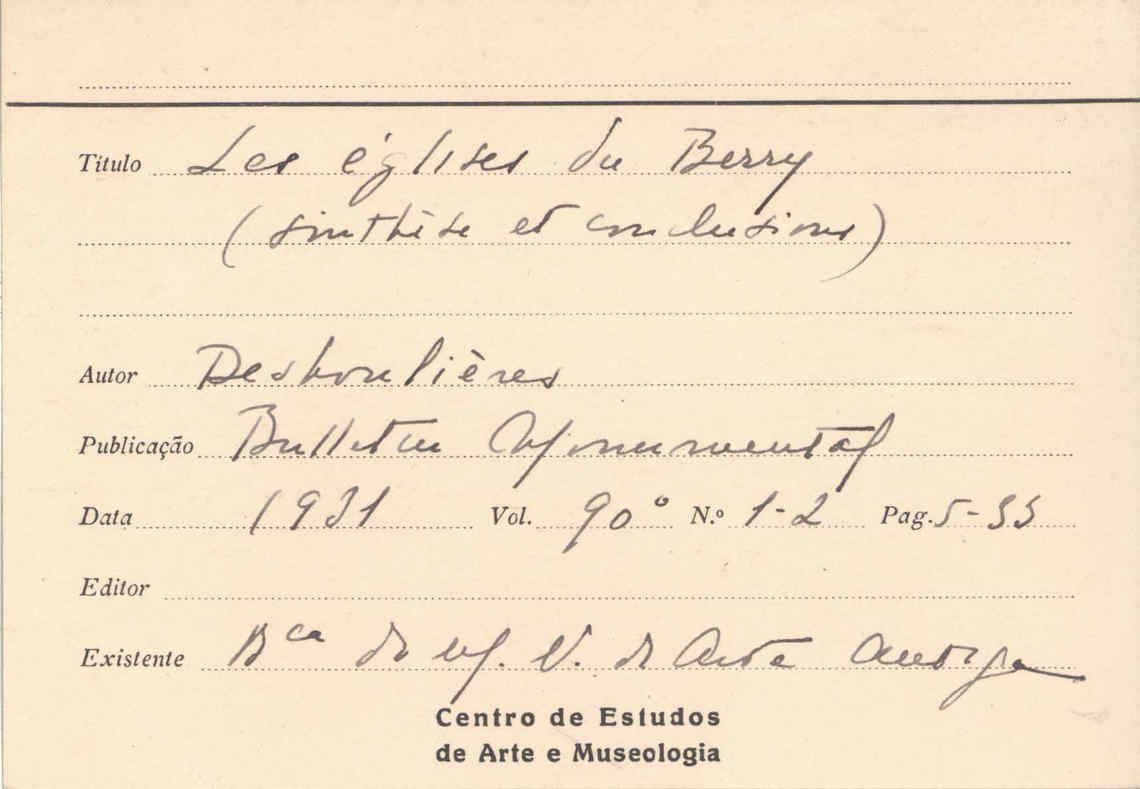 Título Les églises du Berry
(sinthèse et conclusions)
Autor Deshoulières
Publicação Bulletin Monumental
Data 1931 Vol. 90º N.º 1-2 Pag. 5-33
Editor
Existente B.ca do M. N. de Arte Antiga
Centro de Estudos
de Arte e Museologia